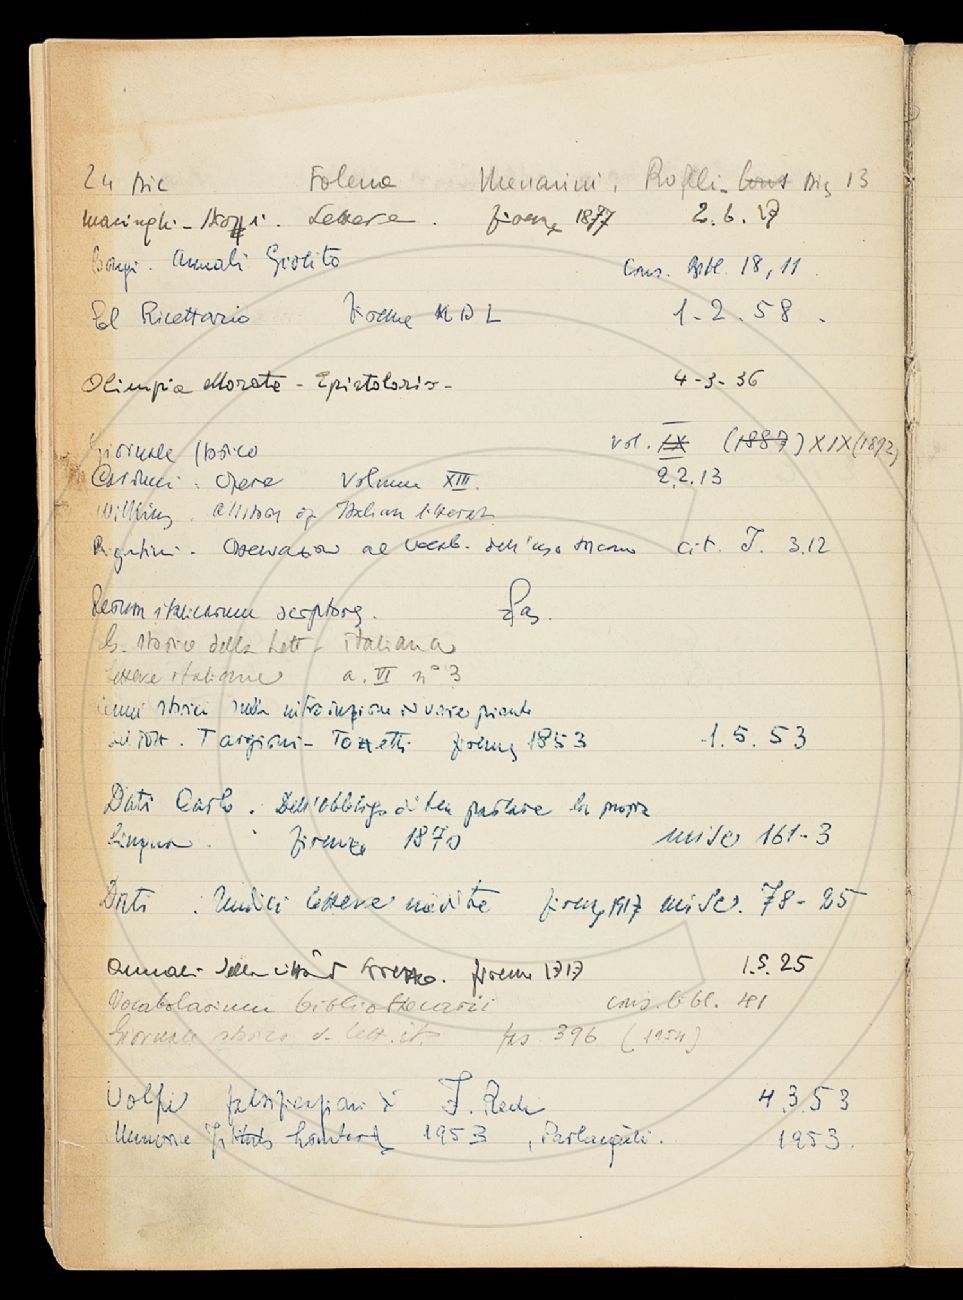 24 Dic Folena Menarini, Profili. Cons Diz 13
Macinghi - Strozzi. Lettere. Firenze 1877 2.6.17
Bongi. Annali Giolito Cons. Bibl. 18, 11.
El Ricettario Firenze MDL 1-2.58.
Olimpia Morata - Epistolario - 4-3-36
Giornale storico vol. IX (1887) XIX (1892)
Carducci. Opere Volume XIII. 2.2.13
Wilkins. A History of Italian literat.
Rigutini. Osservazioni al vocab. dell'uso toscano cit. I. 3.12
Rerum italicarum scriptores.
G. storico della Lett. italiana
Lettere italiane a. VI n° 3
Cenni storici sulla introduzione di varie piante
Targioni-Tozzetti Firenze 1853 1.5.53
Dati Carlo. Dell'obbligo di ben parlare la propria
lingua. Firenze 1870 misc 161-3
Dati: Undici lettere inedite Firenze 1917 misc. 78-25
Annali della città d'Arezzo. Firenze 1717 1.5.25
Vocabolarium bibliothecarii cons. bibl. 41
Giornale storico d. lett. it. fas 396 (1954)
Volpi falsificazioni di F. Redi 4.3.53
Memorie Istituto Lombardo 1953, Parlangèli. 1953.